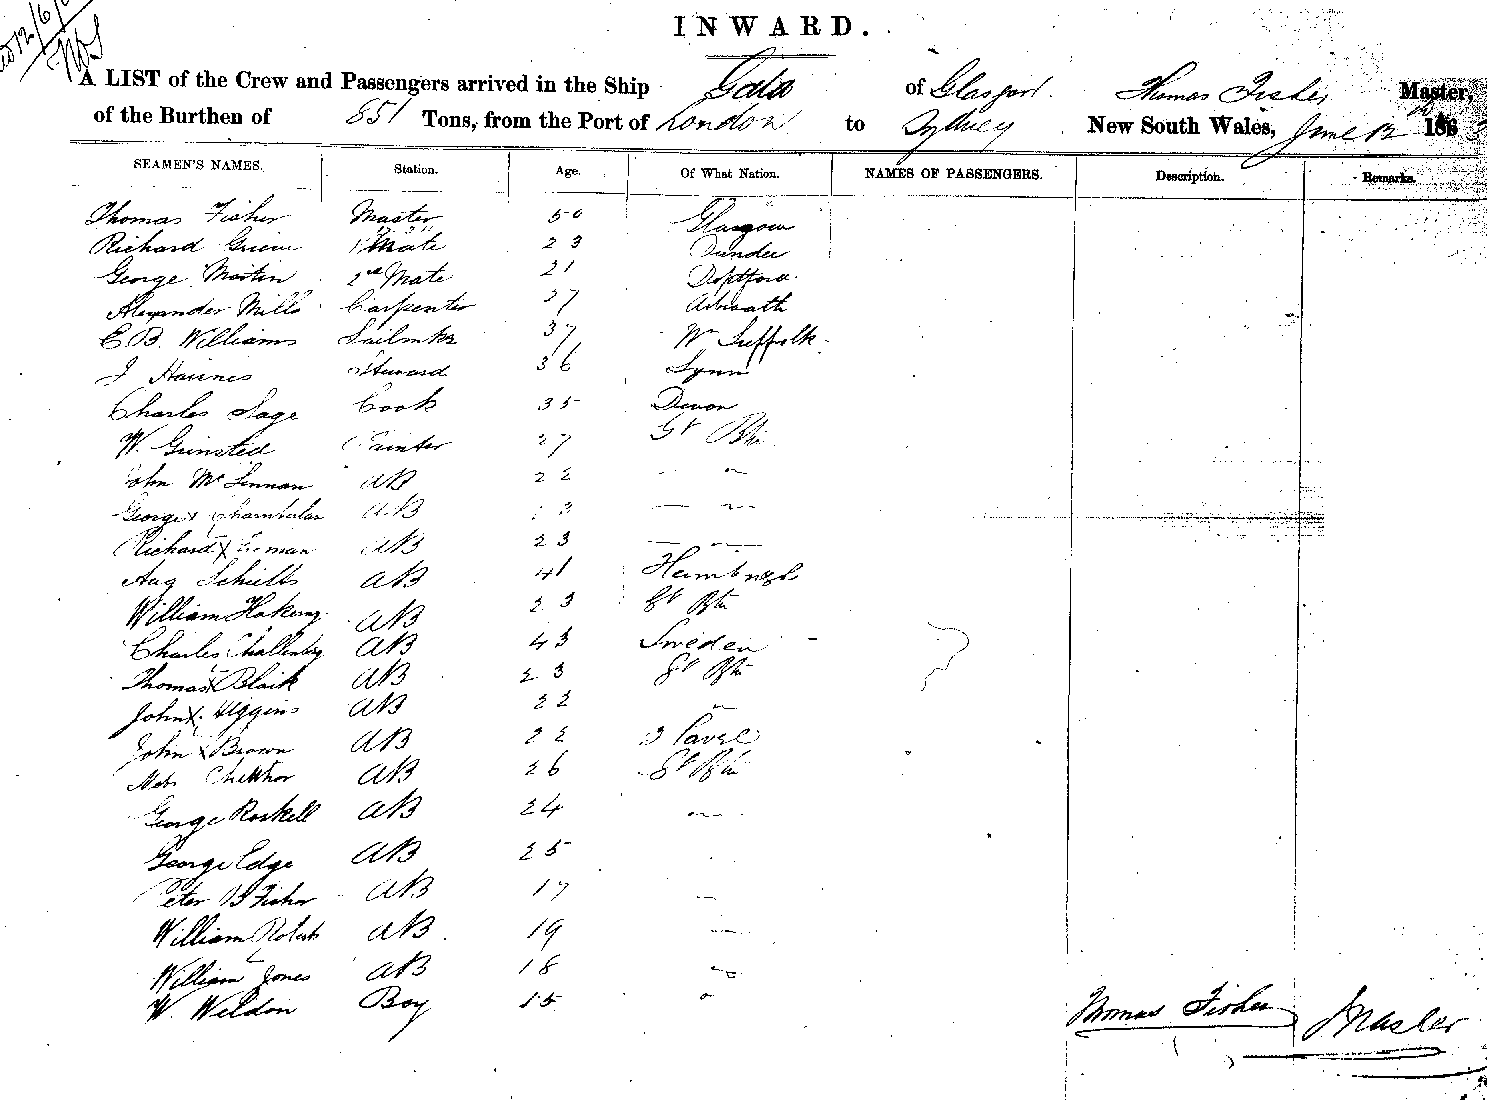 INWARD.
A LIST of the Crew and Passengers arrived in the Ship of Glasgow Thomas Fisher Master,
of the Burthen of 851 Tons, from the Port of London to Sydney New South Wales, June 12 186
SEAMEN'S NAMES. Station. Age. Of What Nation. NAMES OF PASSENGERS. Description. Remarks.
Thomas Fisher Master 50 Glasgow
Richard Mate 23 Dundee
George Martin 2nd Mate 21 Deptford
Alexander Mills Carpenter 27 Arbroath
E. B. Williams Sailmkr 37 Suffolk
J Haines Steward 36 Lynn
Charles Sage Cook 35 Devon
W. Grinsted 27 Gt Btn
John McLennan AB 22 " "
George x Chamberlan AB 3 " "
Richard x AB 23 " "
Aug Schults AB 41 Hamburgh
William AB 23 Gt Btn
Charles AB 43 Sweden
Thomas x Black AB 23 Gt Btn
John x Higgins AB 22 "
John x Brown AB 22
AB 26 Gt Btn
George Roskell AB 24 "
George Edge AB 25
Peter B Fisher AB 17 "
William AB 19 "
William Jones AB 18 "
W. Weldon Boy 15 "
Thomas Fisher Master